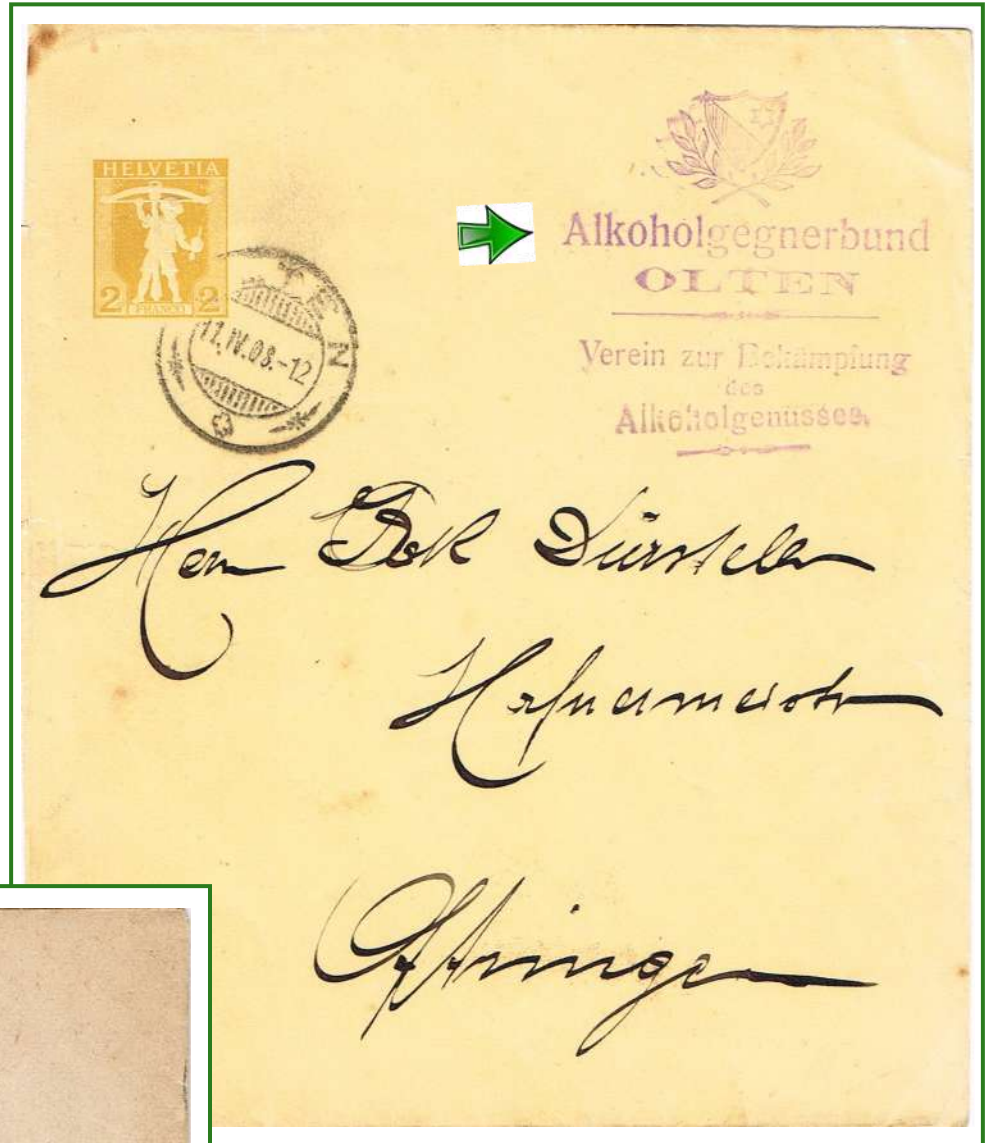 HELVETIA
2 FRANCO 2
OLTEN
17.IV.08.-12
Alkoholgegnerbund
OLTEN
Verein zur Bekämpfung
des
Alkoholgenusses.
Herrn Dürsteler
Hafnermeister
Oftringen